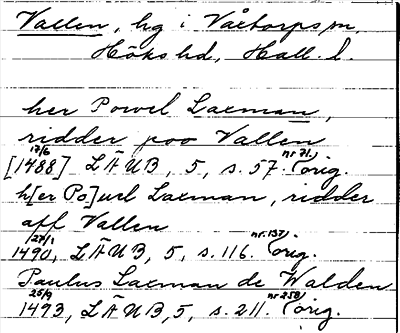 Vallen, hg i Våxtorps sn,
Höks hd, Hall. l.
her Powel Laxman,
ridder poo Vallen
17/6 nr 71.
[1488] LÄUB, 5, s. 57. (orig.
h[er Po]uel Laxman, ridder
aff Vallen
27/1 nr 137.
1490, LÄUB, 5, s. 116. (orig.
Paulus Laxman de Walden
25/9 nr 258.
1493, LÄUB, 5, s. 211. (orig.